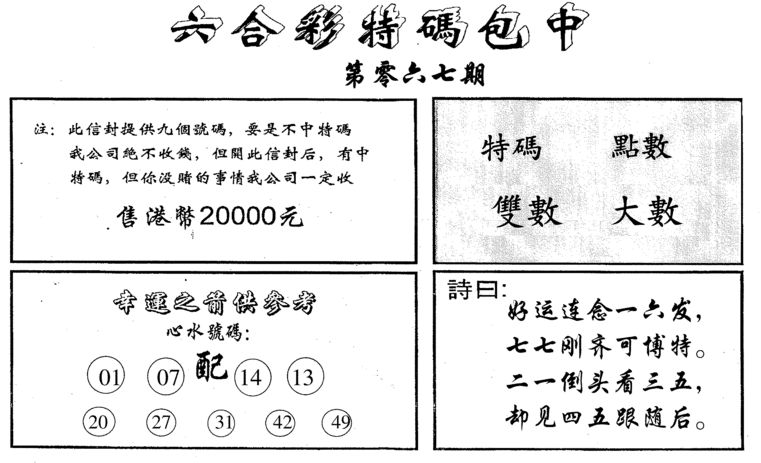 六合彩特碼包中
第零六七期
注：此信封提供九個號碼，要是不中特碼
我公司絶不收錢，但開此信封后，有中
特碼，但你没賭的事情我公司一定收
售港幣20000元
特碼 點數
雙數 大數
幸運之箭供參考
心水號碼：
01 07 配 14 13
20 27 31 42 49
詩曰：
好运连念一六发，
七七刚齐可博特。
二一倒头看三五，
却见四五跟随后。